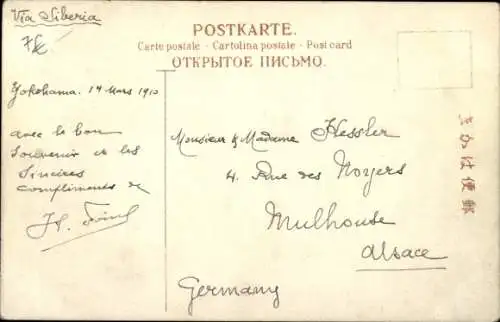 Via Siberia
POSTKARTE.
Carte postale - Cartolina postale - Post card
ОТКРЫТОЕ ПИСЬМО.
Yokohama. 14 Mars 1910
avec le bon
souvenir & les
sincères
compliments de
Monsieur & Madame Hessler
4. Rue des Noyers
Mulhouse
Alsace
Germany
きかは便郵